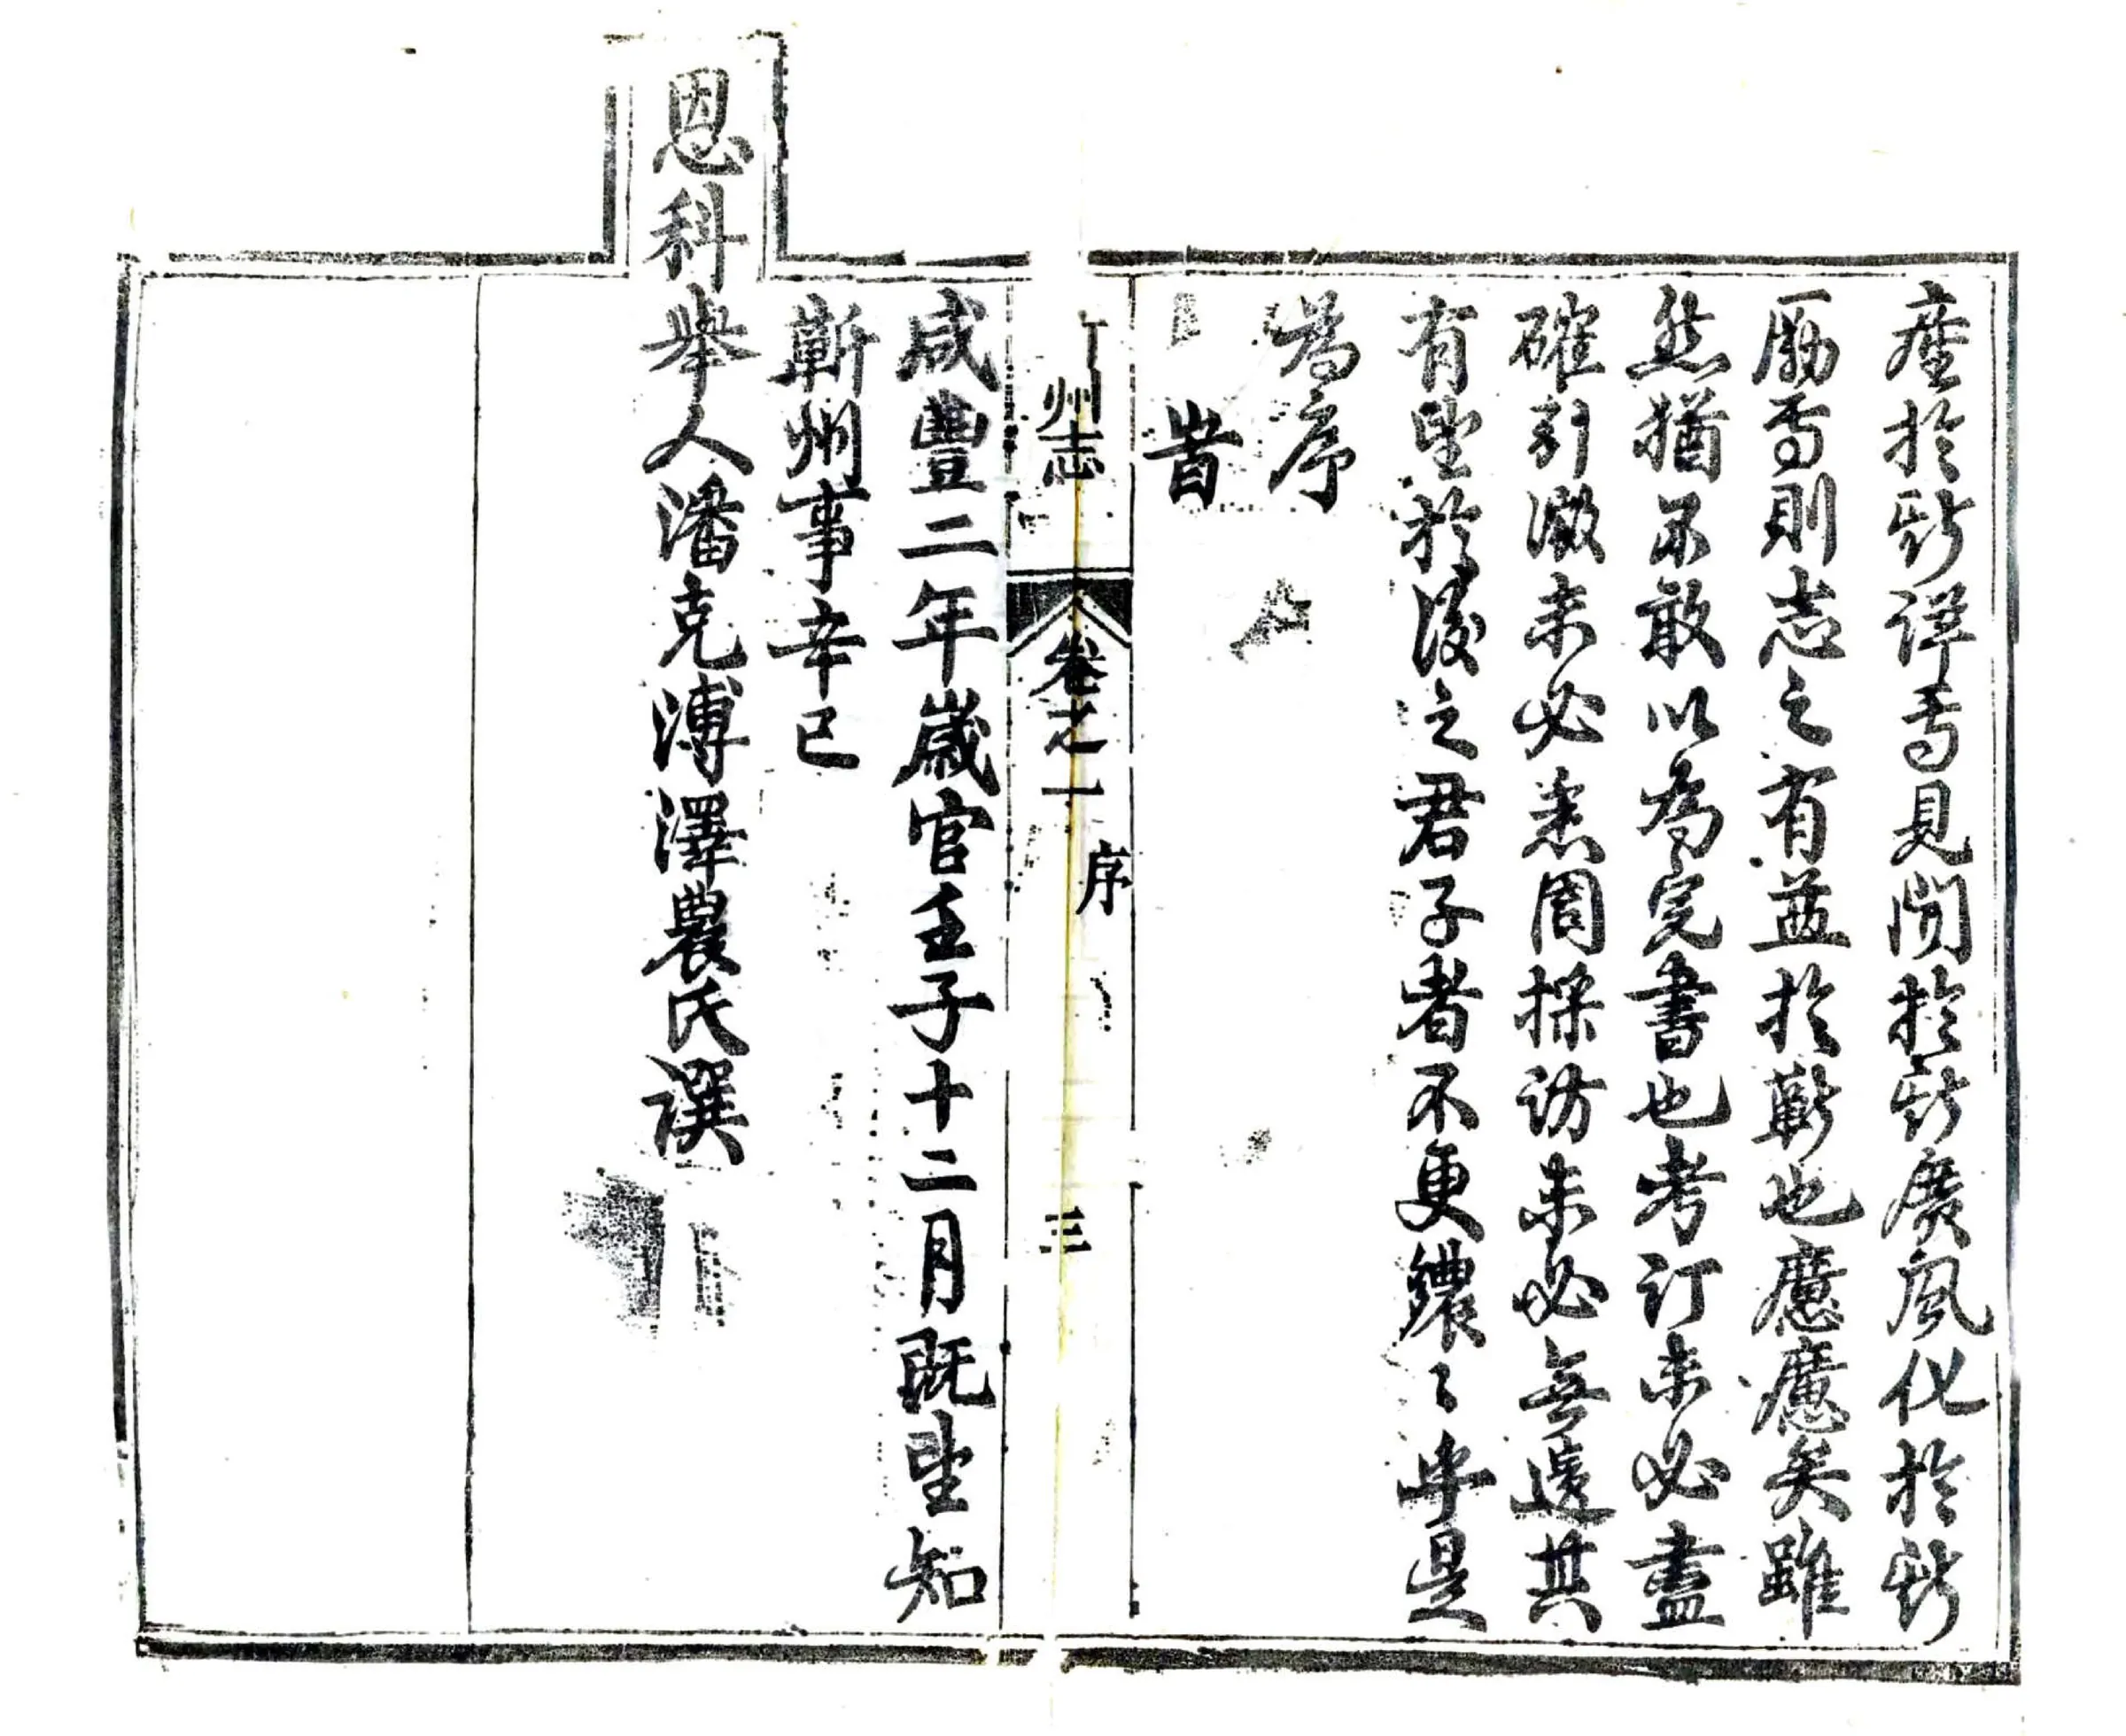 産於斯詳焉見聞於斯廣風化於斯
勵焉則志之有益於蘄也應應矣雖
然猶不敢以為完書也考訂未必盡
確引徵未必悉周採訪未必無遺其
有望於後之君子者不更鑲々乎是
為序
旹
州志 卷之一 序 三
咸豐二年歲官壬子十二月既望知
蘄州事辛巳
恩科舉人潘克溥澤農氏撰